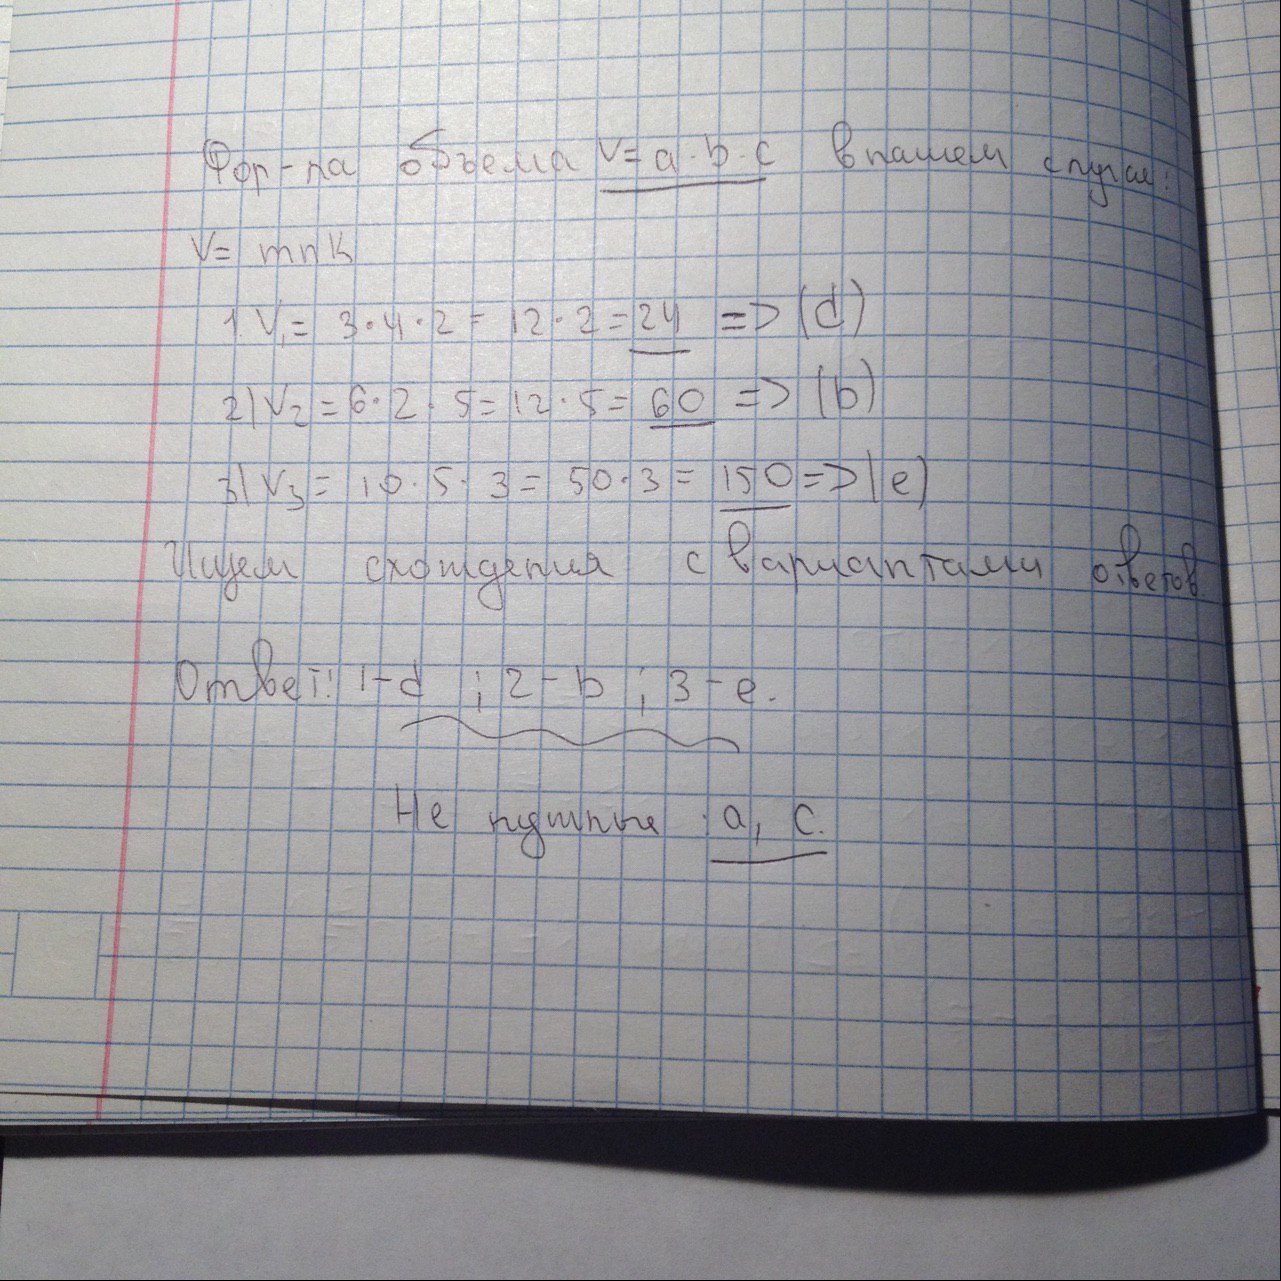 Фор-ла объема V= a·b·c в нашем случае:
V= mnk
1. V₁= 3·4·2 = 12·2=24 => (d)
2) V₂ = 6·2·5=12·5= 60 => (b)
3) V₃ = 10·5·3= 50·3= 150 => (e)
Ищем схождения с вариантами ответов.
Ответ: 1-d ; 2-b ; 3-e.
Не нужные: a, c.